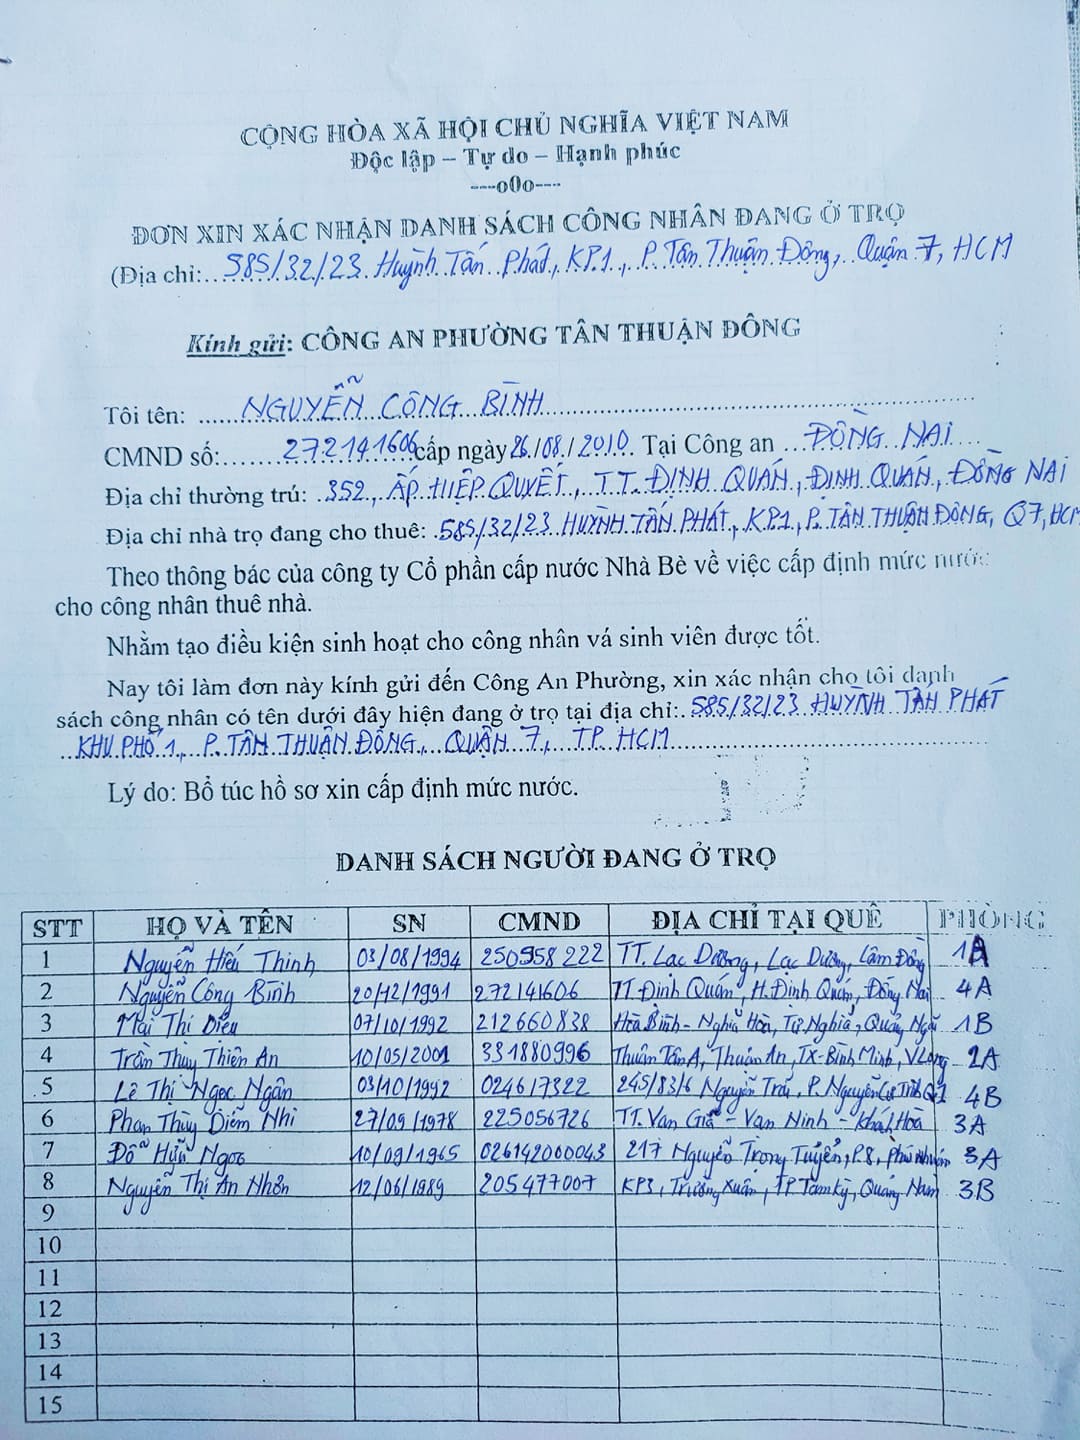 CỘNG HÒA XÃ HỘI CHỦ NGHĨA VIỆT NAM
Độc lập – Tự do – Hạnh phúc
---o0o---
ĐƠN XIN XÁC NHẬN DANH SÁCH CÔNG NHÂN ĐANG Ở TRỌ
(Địa chỉ:...585/32/23 Huỳnh Tấn Phát, KP.1, P. Tân Thuận Đông, Quận 7, HCM
Kính gửi: CÔNG AN PHƯỜNG TÂN THUẬN ĐÔNG
Tôi tên: ......NGUYỄN CÔNG BÌNH......
CMND số:......272141606 cấp ngày 26/08/2010. Tại Công an ...ĐỒNG NAI...
Địa chỉ thường trú: 352, ẤP HIỆP QUYẾT, TT. ĐỊNH QUÁN, ĐỊNH QUÁN, ĐỒNG NAI
Địa chỉ nhà trọ đang cho thuê: 585/32/23 HUỲNH TẤN PHÁT, KP1, P. TÂN THUẬN ĐÔNG, Q7, HCM
Theo thông bác của công ty Cổ phần cấp nước Nhà Bè về việc cấp định mức nước
cho công nhân thuê nhà.
Nhằm tạo điều kiện sinh hoạt cho công nhân vá sinh viên được tốt.
Nay tôi làm đơn này kính gửi đến Công An Phường, xin xác nhận cho tôi danh
sách công nhân có tên dưới đây hiện đang ở trọ tại địa chỉ: 585/32/23 HUỲNH TẤN PHÁT
KHU PHỐ 1, P. TÂN THUẬN ĐÔNG, QUẬN 7, TP. HCM
Lý do: Bổ túc hồ sơ xin cấp định mức nước.
DANH SÁCH NGƯỜI ĐANG Ở TRỌ
STT HỌ VÀ TÊN SN CMND ĐỊA CHỈ TẠI QUÊ PHÒNG
1 Nguyễn Hiếu Thinh 03/08/1994 250958222 TT. Lạc Dương, Lạc Dương, Lâm Đồng 1A
2 Nguyễn Công Bình 20/12/1991 272141606 TT. Định Quán, H. Định Quán, Đồng Nai 4A
3 Mai Thị Diệu 07/10/1992 212660838 Hòa Bình - Nghĩa Hòa, Tư Nghĩa, Quảng Ngãi 1B
4 Trần Thùy Thiên An 10/05/2001 331880996 Thuận Tân A, Thuận An, TX-Bình Minh, V Long 2A
5 Lê Thị Ngọc Ngân 03/10/1992 024617322 245/83/6 Nguyễn Trãi, P. Nguyễn Cư Trinh Q1 4B
6 Phan Thùy Diễm Nhi 27/09/1978 225056726 TT. Vạn Giã - Vạn Ninh - Khánh Hòa 3A
7 Đỗ Hữu Ngọc 10/09/1965 026142000043 217 Nguyễn Trọng Tuyển, P8, Phú Nhuận 3A
8 Nguyễn Thị An Nhơn 12/06/1989 205477007 KP3, Trường Xuân, TP. Tam Kỳ, Quảng Nam 3B
9
10
11
12
13
14
15